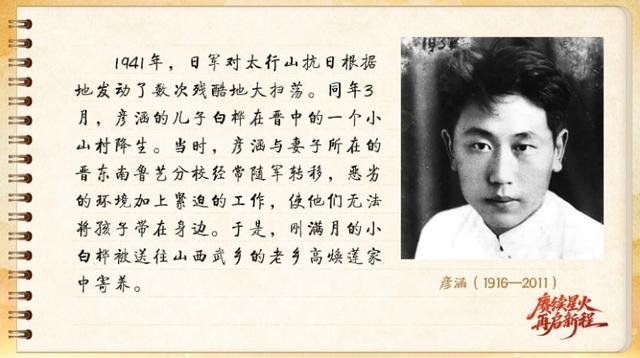 1941年，日军对太行山抗日根据
地发动了数次残酷地大扫荡。同年3
月，彦涵的儿子白桦在晋中的一个小
山村降生。当时，彦涵与妻子所在的
晋东南鲁艺分校经常随军转移，恶劣
的环境加上紧迫的工作，使他们无法
将孩子带在身边。于是，刚满月的小
白桦被送往山西武乡的老乡高焕莲家
中寄养。
1937
彦涵（1916—2011）
赓续星火
再启新程